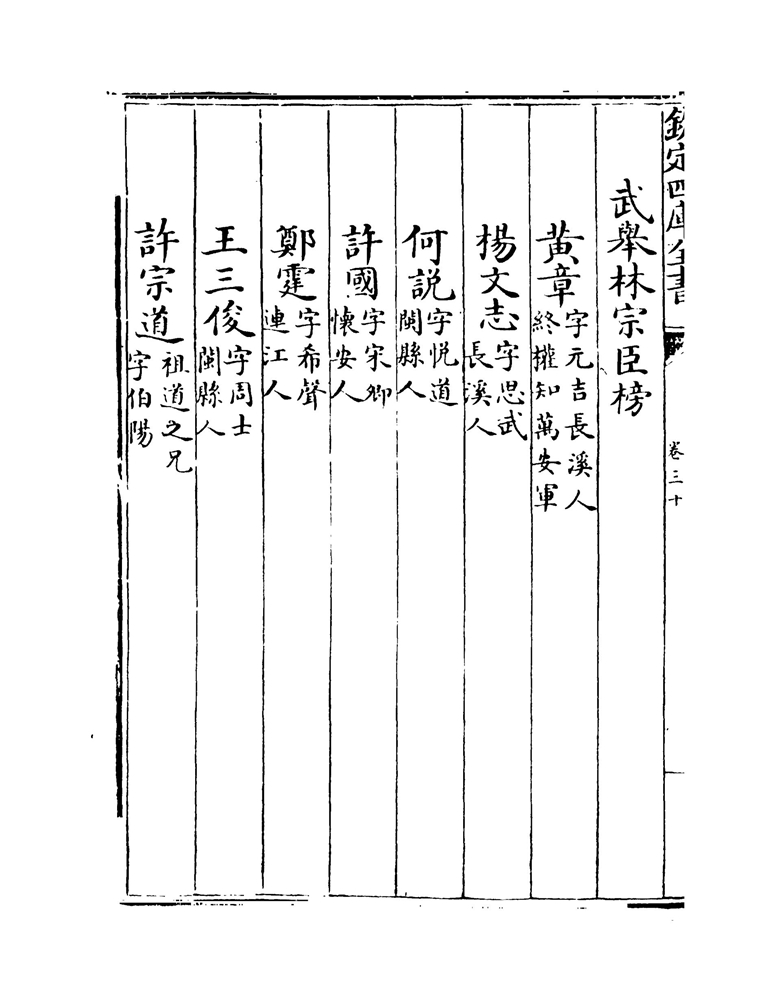 欽定四庫全書
卷三十
武舉林宗臣榜
黃章字元吉長溪人
終權知萬安軍
楊文志字思武
長溪人
何説字悦道
閩縣人
許國字宋卿
懐安人
鄭霆字希聲
連江人
王三俊字周士
閩縣人
許宗道祖道之兄
字伯陽